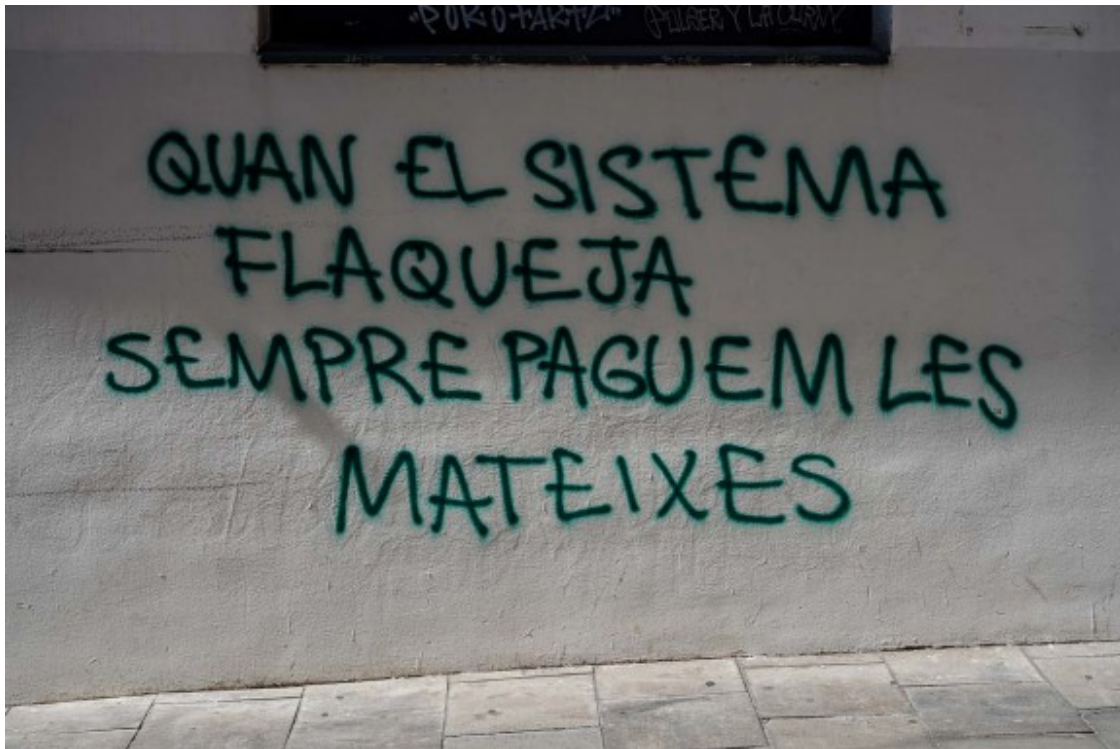 QUAN EL SISTEMA
FLAQUEJA
SEMPRE PAGUEM LES
MATEIXES